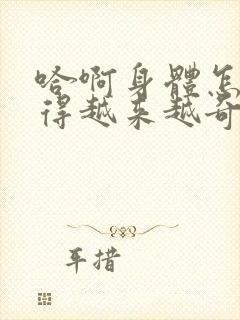 哈啊身體怎
得越来越奇
车措